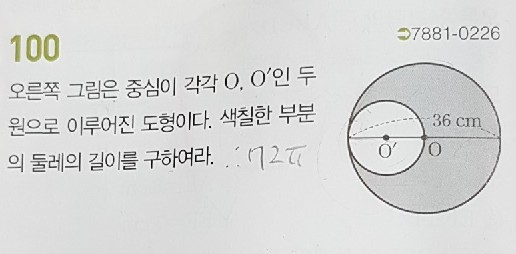 100
➲7881-0226
오른쪽 그림은 중심이 각각 O, O′인 두
원으로 이루어진 도형이다. 색칠한 부분
의 둘레의 길이를 구하여라. ∴72π
36 cm
O′
O